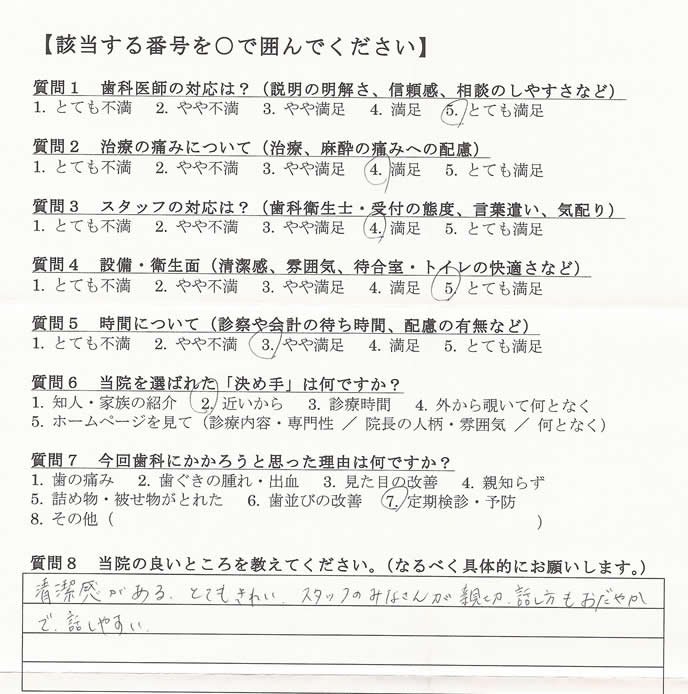 【該当する番号を〇で囲んでください】
質問1 歯科医師の対応は？（説明の明解さ、信頼感、相談のしやすさなど）
1. とても不満 2. やや不満 3. やや満足 4. 満足 5. とても満足
質問2 治療の痛みについて（治療、麻酔の痛みへの配慮）
1. とても不満 2. やや不満 3. やや満足 4. 満足 5. とても満足
質問3 スタッフの対応は？（歯科衛生士・受付の態度、言葉遣い、気配り）
1. とても不満 2. やや不満 3. やや満足 4. 満足 5. とても満足
質問4 設備・衛生面（清潔感、雰囲気、待合室・トイレの快適さなど）
1. とても不満 2. やや不満 3. やや満足 4. 満足 5. とても満足
質問5 時間について（診察や会計の待ち時間、配慮の有無など）
1. とても不満 2. やや不満 3. やや満足 4. 満足 5. とても満足
質問6 当院を選ばれた「決め手」は何ですか？
1. 知人・家族の紹介 2. 近いから 3. 診療時間 4. 外から覗いて何となく
5. ホームページを見て（診療内容・専門性 ／ 院長の人柄・雰囲気 ／ 何となく）
質問7 今回歯科にかかろうと思った理由は何ですか？
1. 歯の痛み 2. 歯ぐきの腫れ・出血 3. 見た目の改善 4. 親知らず
5. 詰め物・被せ物がとれた 6. 歯並びの改善 7. 定期検診・予防
8. その他（ ）
質問8 当院の良いところを教えてください。（なるべく具体的にお願いします。）
清潔感がある. とてもきれい. スタッフのみなさんが親切. 話し方もおだやか
で. 話しやすい.